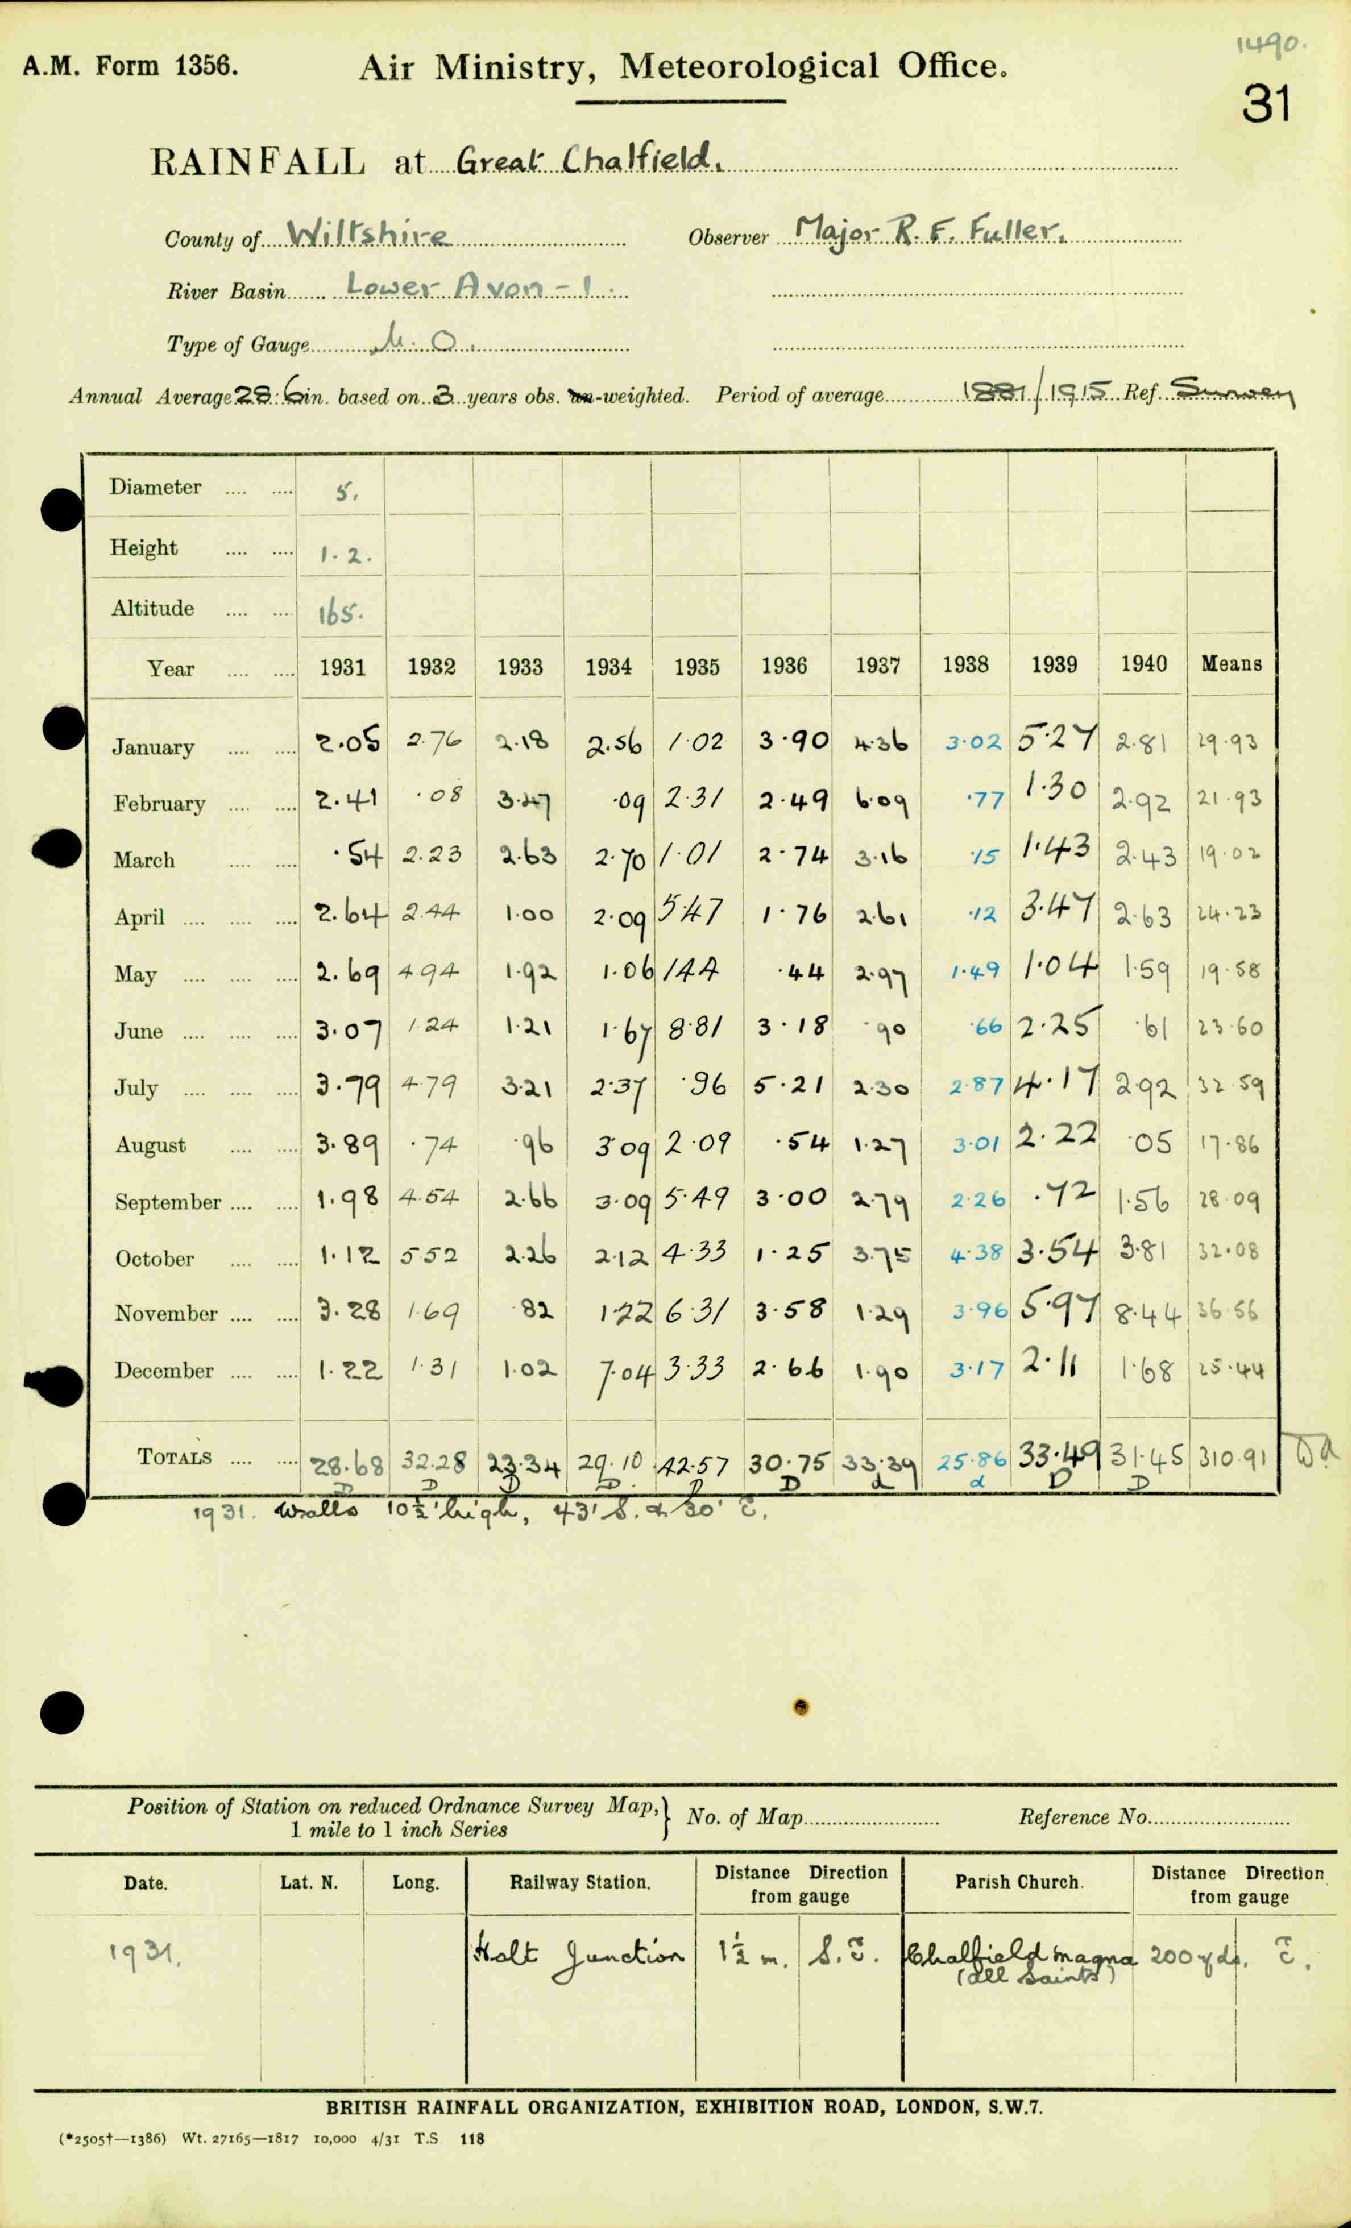 1490.
A.M. Form 1356. Air Ministry, Meteorological Office.
31
RAINFALL at Great Chalfield.
County of Wiltshire Observer Major R. F. Fuller.
River Basin Lower Avon - 1.
Type of Gauge M. O.
Annual Average 28.6 in. based on 3 years obs. un-weighted. Period of average 1881/1915 Ref. Survey
Diameter 5.
Height 1.2.
Altitude 165.
Year 1931 1932 1933 1934 1935 1936 1937 1938 1939 1940 Means
January 2.05 2.76 2.18 2.56 1.02 3.90 4.36 3.02 5.27 2.81 29.93
February 2.41 .08 3.47 .09 2.31 2.49 6.09 .77 1.30 2.92 21.93
March .54 2.23 2.63 2.70 1.01 2.74 3.16 .15 1.43 2.43 19.02
April 2.64 2.44 1.00 2.09 5.47 1.76 2.61 .12 3.47 2.63 24.23
May 2.69 4.94 1.92 1.06 1.44 .44 2.97 1.49 1.04 1.59 19.58
June 3.07 1.24 1.21 1.67 8.81 3.18 .90 .66 2.25 .61 23.60
July 3.79 4.79 3.21 2.37 .96 5.21 2.30 2.87 4.17 2.92 32.59
August 3.89 .74 .96 3.09 2.09 .54 1.27 3.01 2.22 .05 17.86
September 1.98 4.54 2.66 3.09 5.49 3.00 2.79 2.26 .72 1.56 28.09
October 1.12 5.52 2.26 2.12 4.33 1.25 3.75 4.38 3.54 3.81 32.08
November 3.28 1.69 .82 1.22 6.31 3.58 1.29 3.96 5.97 8.44 36.56
December 1.22 1.31 1.02 7.04 3.33 2.66 1.90 3.17 2.11 1.68 25.44
TOTALS 28.68 32.28 23.34 29.10 42.57 30.75 33.39 25.86 33.49 31.45 310.91
D D D D D D d d D D
1931. Walls 10½' high, 43' S. & 30' E.
Position of Station on reduced Ordnance Survey Map, 1 mile to 1 inch Series No. of Map Reference No.
Date. Lat. N. Long. Railway Station. Distance Direction from gauge Parish Church. Distance Direction from gauge
1931. Holt Junction 1½ m. S.E. Chalfield Magna 200 yds. E.
(All Saints)
BRITISH RAINFALL ORGANIZATION, EXHIBITION ROAD, LONDON, S.W.7.
(*2505†—1386) Wt. 27165—1817 10,000 4/31 T.S 118